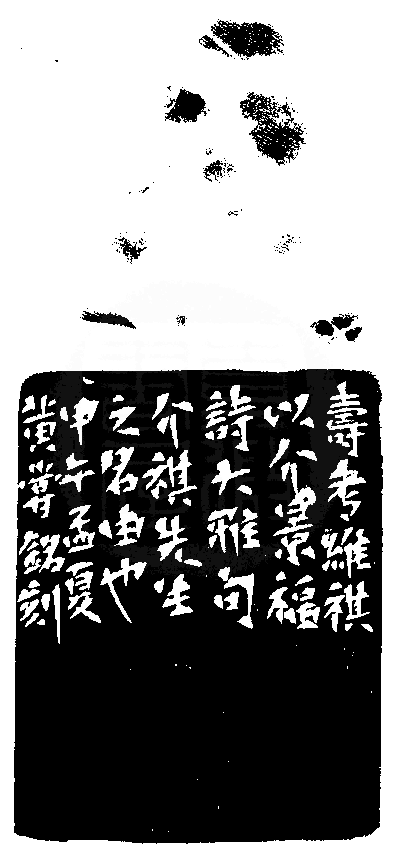 壽考維祺
以介景福
詩大雅句
介祺先生
之名由也
甲午孟夏
黄嘗銘刻